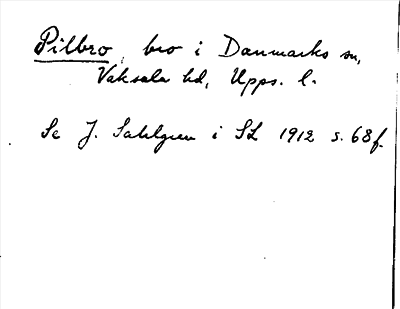 Pilbro, bro i Danmarks sn,
Vaksala hd, Upps. l.
Se J. Sahlgren i SL 1912 s. 68f.